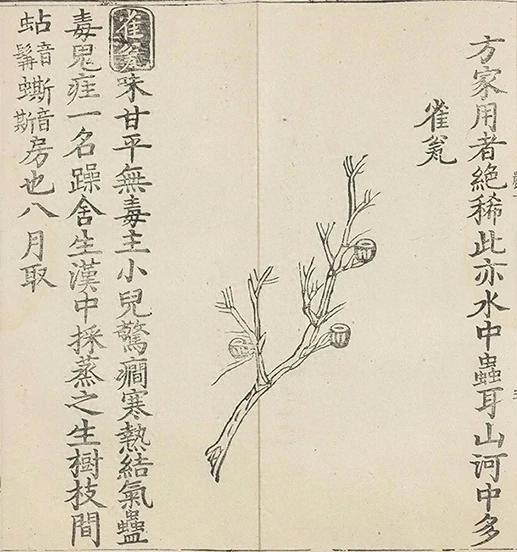 方家用者絶稀此亦水中蟲耳山河中多
雀瓮
雀瓮味甘平無毒主小兒驚癇寒熱結氣蠱
毒鬼疰一名躁舍生漢中採蒸之生樹枝間
蛅音髯蟖音斯房也八月取